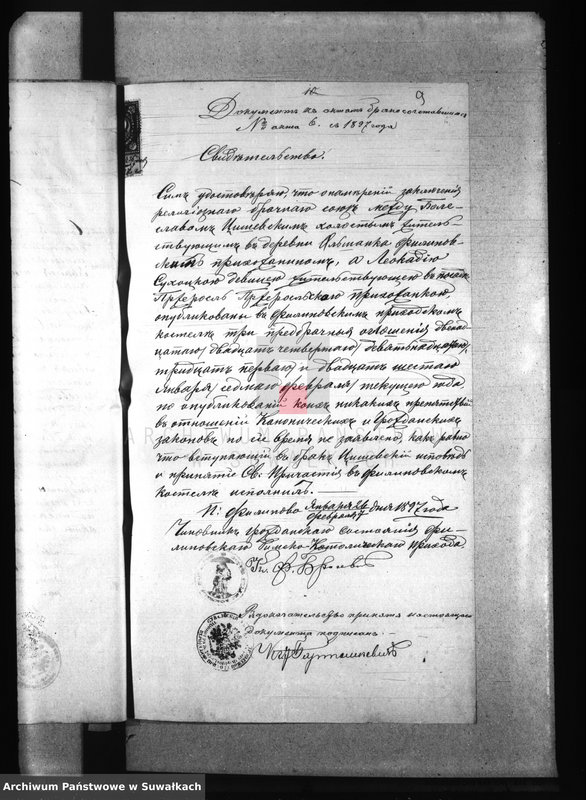 10
9
Документъ къ актамъ бракосочетавшихся
№ акта 6. съ 1897 года
Свидѣтельство.
Симъ удостовѣряю, что о намѣреніи заключенія
религіознаго брачнаго союза между Боле-
славомъ Цишевскимъ холостымъ житель-
ствующимъ въ деревни Ольшанка филипов-
скимъ прихожаниномъ, а Леокадіею
Сухоцкою девицею жительствующею въ посадѣ
Пржеросль Пржерослскаго прихожанкою,
опубликованы въ филиповскомъ приходскомъ
костелѣ три предбрачныя оглошенія двенад-
цатаго /двадцать четвертаго/ девятнадцатаго
/тридцать перваго/ и двадцать шестаго
Января /седмаго февраля/ текущего года,
по опубликованіи коихъ никакихъ препятствій
въ отношеніи Каноническихъ и Гражданскихъ
законовъ по сіе время не заявлено, какъ равно
что вступающій въ бракъ Цишевскій исповѣдь
и принятіе Св. Причастія въ филиповскомъ
костелѣ исполнилъ.
П. Филипово Января 26/февраля 7 дня 1897 года
Чиновникъ гражданскаго состоянія Фи-
липовскаго Римско-Католическаго прихода.
Рукоприкладство принятя настоящаго
документа подписалъ
Archiwum Państwowe w Suwałkach